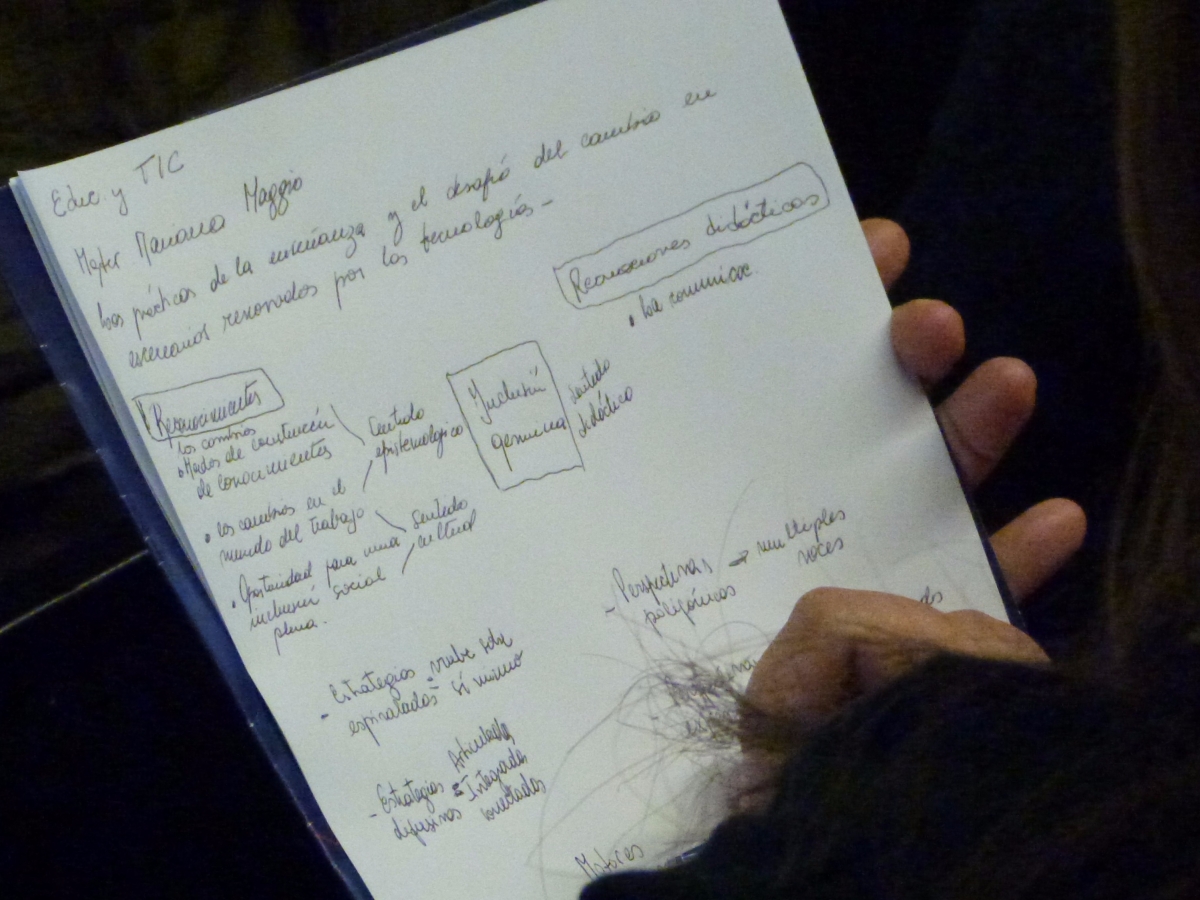 Educ. y TIC
Mariana Maggio
Las prácticas de la enseñanza y el desafió del cambio en
escenarios renovados por las tecnologías-
Reconocimientos
los cambios
• Modos de construcción
de conocimientos
Sentido
epistemológico
• los cambios en el
mundo del trabajo
• Oportunidad para una
inclusión social
plena.
Sentido
cultural
Inclusión
genuina
sentido
didáctico
didácticas
• La comunicac.
- Estrategias
espiraladas
sobre
sí mismo
- Estrategias
Articuladas
Integradas
conectadas
- Perspectivas
polifónicas
→ multiples
voces
Motores